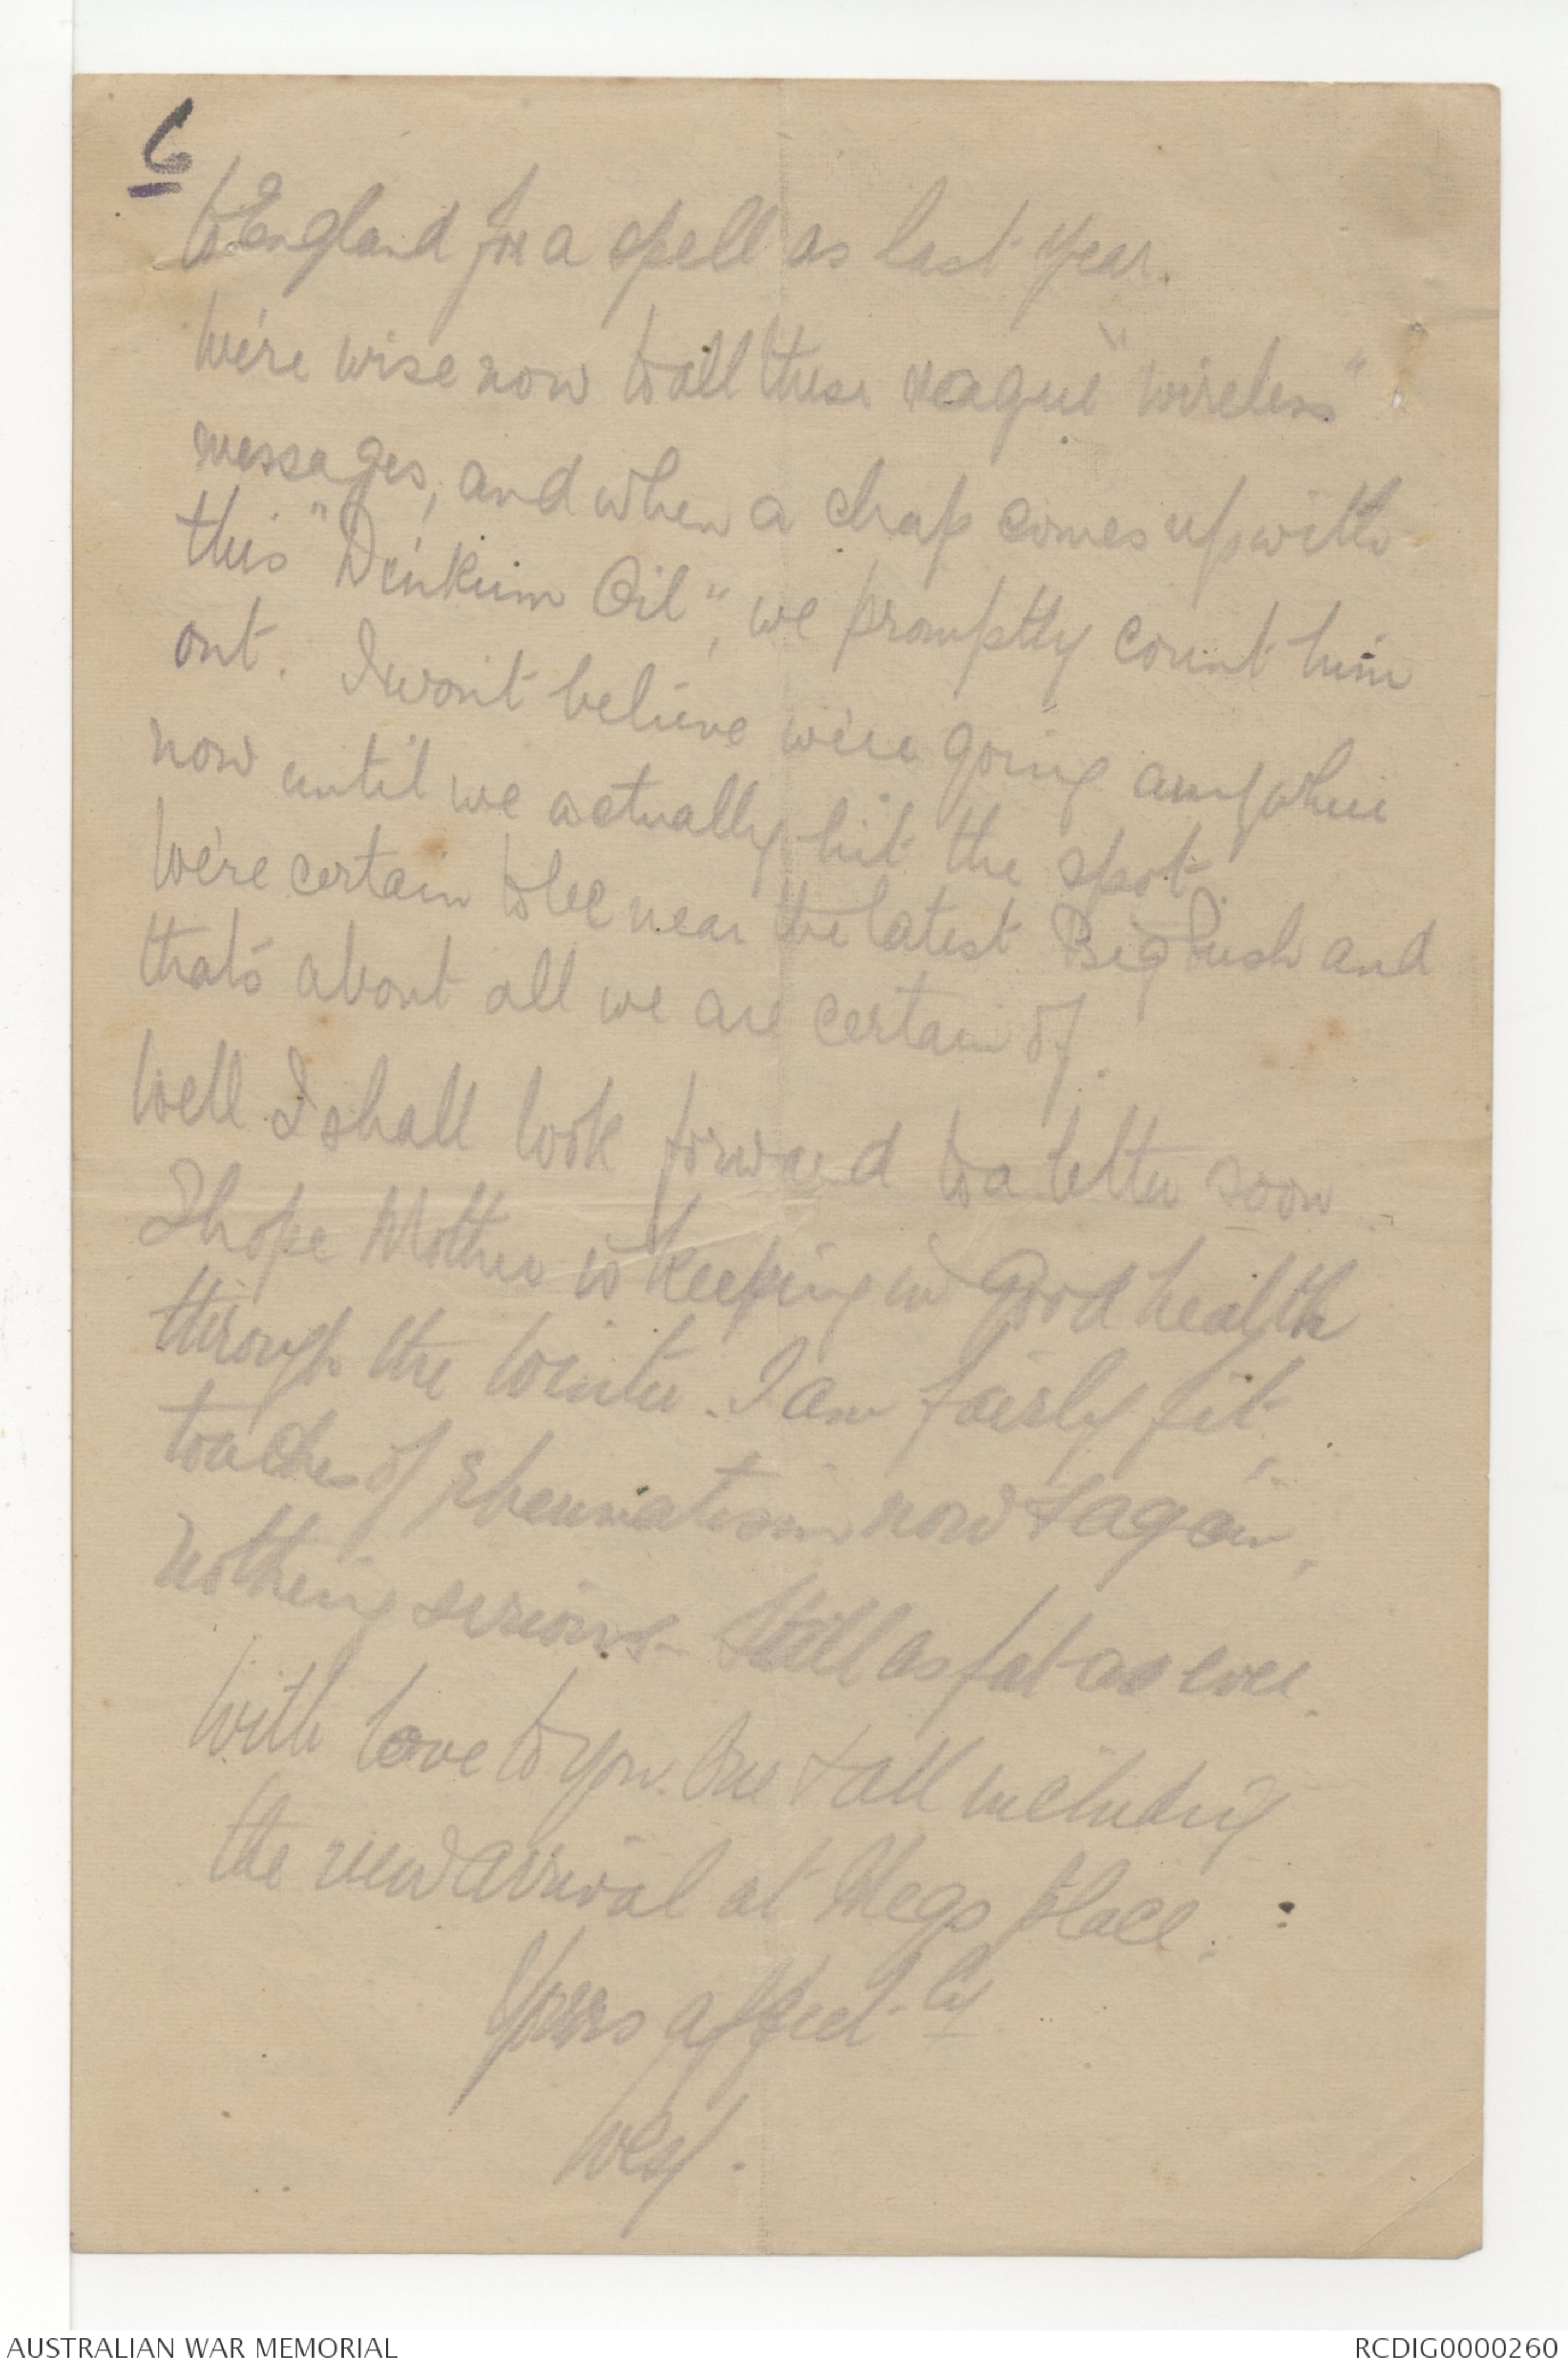 6
to England for a spell as last year.
We're wise now to all these vague "wireless"
messages, and when a chap comes up with
this "Dinkum Oil", we promptly count him
out. I won't believe we're going anywhere
now until we actually hit the spot.
We're certain to be near the latest Big Push and
that's about all we are certain of.
Well I shall look forward to a letter soon
I hope Mother is keeping in good health
through the winter. I am fairly fit,
touches of rheumatism now & again,
nothing serious - Still as fat as ever.
With love to you one & all including
the new arrival at Megs place.
Yours affect-ly
Wesy.
AUSTRALIAN WAR MEMORIAL
RCDIG0000260